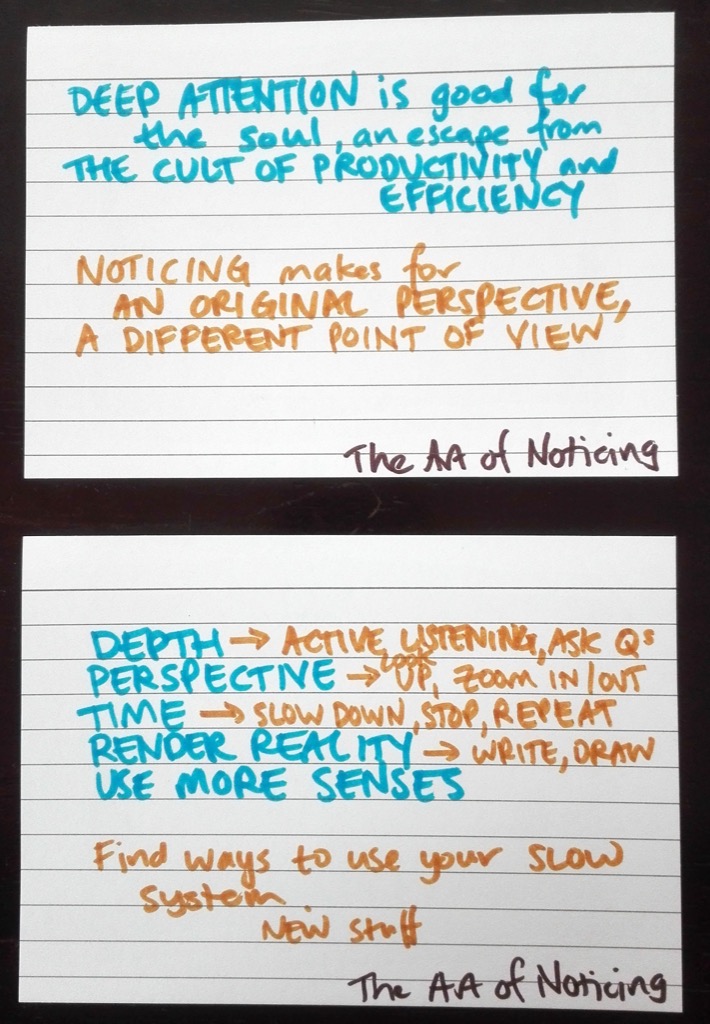 DEEP ATTENTION is good for
the soul, an escape from
THE CULT OF PRODUCTIVITY and
EFFICIENCY
NOTICING makes for
AN ORIGINAL PERSPECTIVE,
A DIFFERENT POINT OF VIEW
The AA of Noticing
DEPTH → ACTIVE LISTENING, ASK Qs
PERSPECTIVE → LOOK UP, ZOOM IN/OUT
TIME → SLOW DOWN, STOP, REPEAT
RENDER REALITY → WRITE, DRAW
USE MORE SENSES
Find ways to use your SLOW
system
NEW stuff
The AA of Noticing